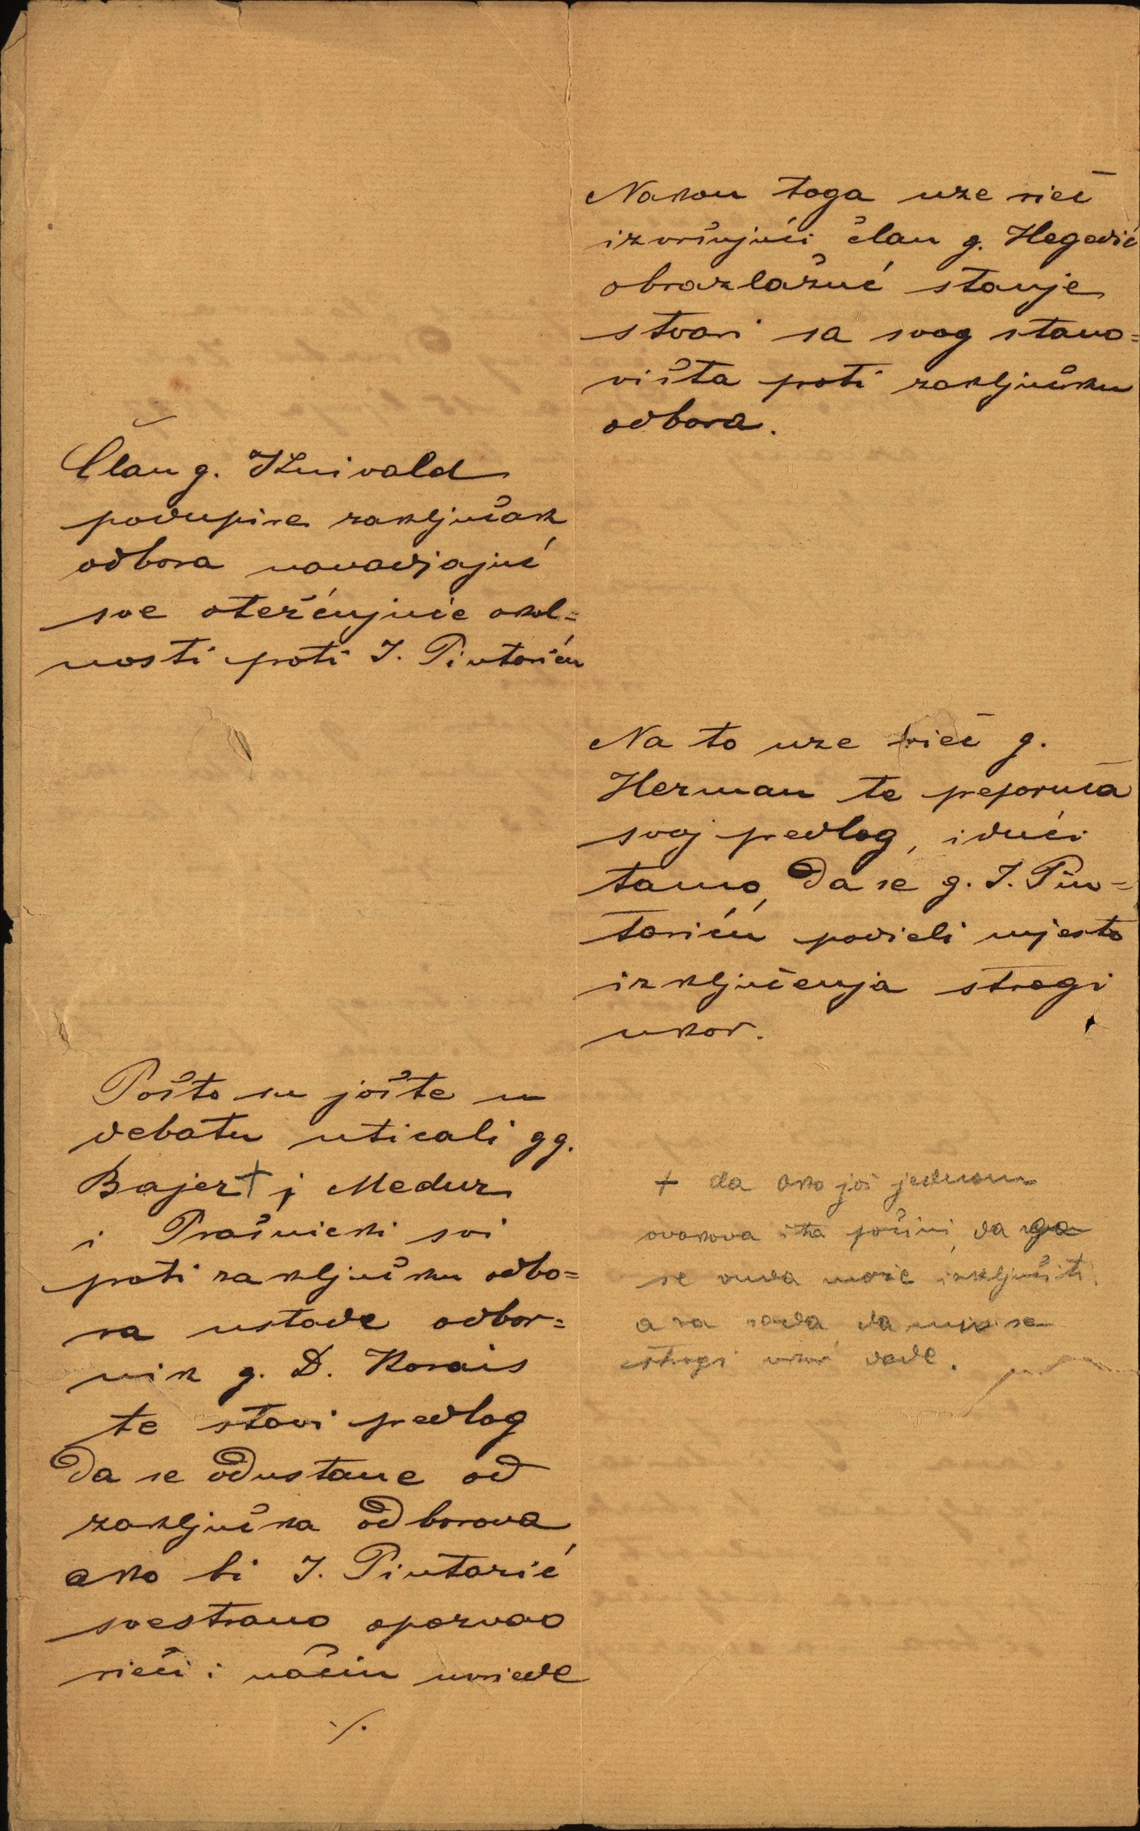 Nakon toga uze rieč
izvršujući član g. Hegedić
obrazlažuć stanje
stvari sa svog stano=
višta proti zaključku
odbora.
Član g. Kuivald
podupire zaključak
odbora navadjajuć
sve otešćujuće okol=
nosti proti I. Pintariću
Na to uze rieč g.
Herman te preporuča
svoj predlog, idući
tamo, da se g. I. Pin=
tariću podieli mjesto
izključenja strogi
ukor.
Pošto su jošte u
debatu uticali gg.
Bajer + i Medur
i Prašnicki svi
proti zaključku odbo=
ra ustade odbor=
nik g. D. Korais
te stavi predlog
da se odustane od
zaključka odborova
ako bi I. Pintarić
svestrano opozvao
rieči i način uvriede
./.
+ da ako još jednom
ovakova šta počini, da ga
se onda može izključiti,
a za sada da mu se
strogi ukor dade.